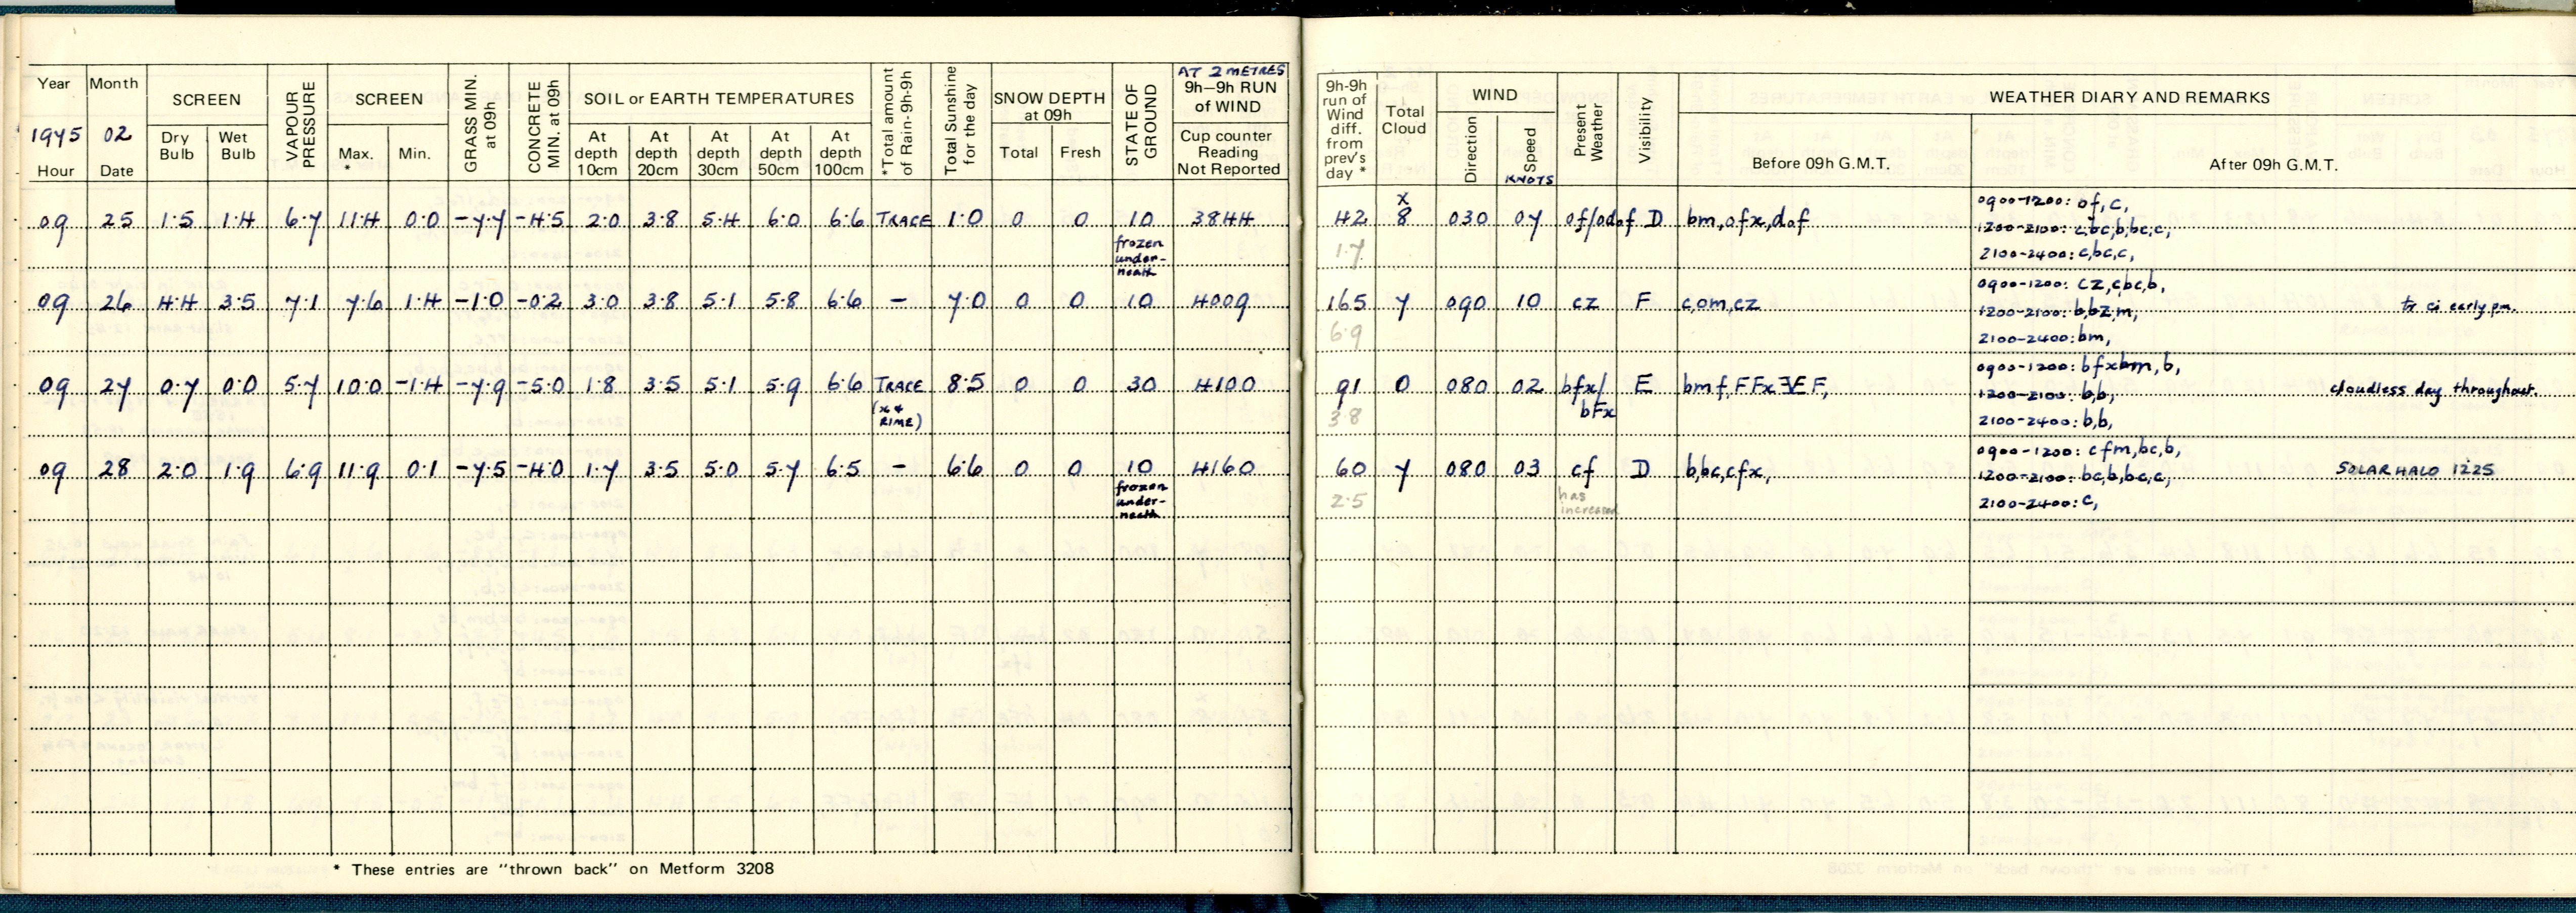 AT 2 METRES
Year Month SCREEN VAPOUR PRESSURE SCREEN GRASS MIN. at 09h CONCRETE MIN. at 09h SOIL or EARTH TEMPERATURES *Total amount of Rain-9h-9h Total Sunshine for the day SNOW DEPTH at 09h STATE OF GROUND 9h–9h RUN of WIND
1975 02 Dry Bulb Wet Bulb Max. * Min. At depth 10cm At depth 20cm At depth 30cm At depth 50cm At depth 100cm Total Fresh Cup counter Reading Not Reported
Hour Date
09 25 1.5 1.4 6.7 11.4 0.0 -7.7 -4.5 2.0 3.8 5.4 6.0 6.6 TRACE 1.0 0 0 10 3844
frozen
under-
neath
09 26 4.4 3.5 7.1 7.6 1.4 -1.0 -0.2 3.0 3.8 5.1 5.8 6.6 - 7.0 0 0 10 4009
09 27 0.7 0.0 5.7 10.0 -1.4 -7.9 -5.0 1.8 3.5 5.1 5.9 6.6 TRACE 8.5 0 0 30 4100
(x +
RIME)
09 28 2.0 1.9 6.9 11.9 0.1 -7.5 -4.0 1.7 3.5 5.0 5.7 6.5 - 6.6 0 0 10 4160
frozen
under-
neath
* These entries are "thrown back" on Metform 3208
9h-9h run of Wind diff. from prev's day * Total Cloud WIND Present Weather Visibility WEATHER DIARY AND REMARKS
Direction Speed KNOTS Before 09h G.M.T. After 09h G.M.T.
x
42 8 030 07 of/odof D bm,ofx,dof 0900-1200: of,c,
1.7 1200-2100: c,bc,b,bc,c,
2100-2400: c,bc,c,
165 7 090 10 cz F c,om,cz 0900-1200: cz,c,bc,b,
6.9 1200-2100: b,bz,m, tr ci early pm.
2100-2400: bm,
91 0 080 02 bfx/ bFx E bmf,FFx F, 0900-1200: bfxbm,b,
3.8 1200-2100: b,b, cloudless day throughout.
2100-2400: b,b,
60 7 080 03 cf D b,bc,cfx, 0900-1200: cfm,bc,b,
2.5 has increased 1200-2100: bc,b,bc,c, SOLAR HALO 1225
2100-2400: c,